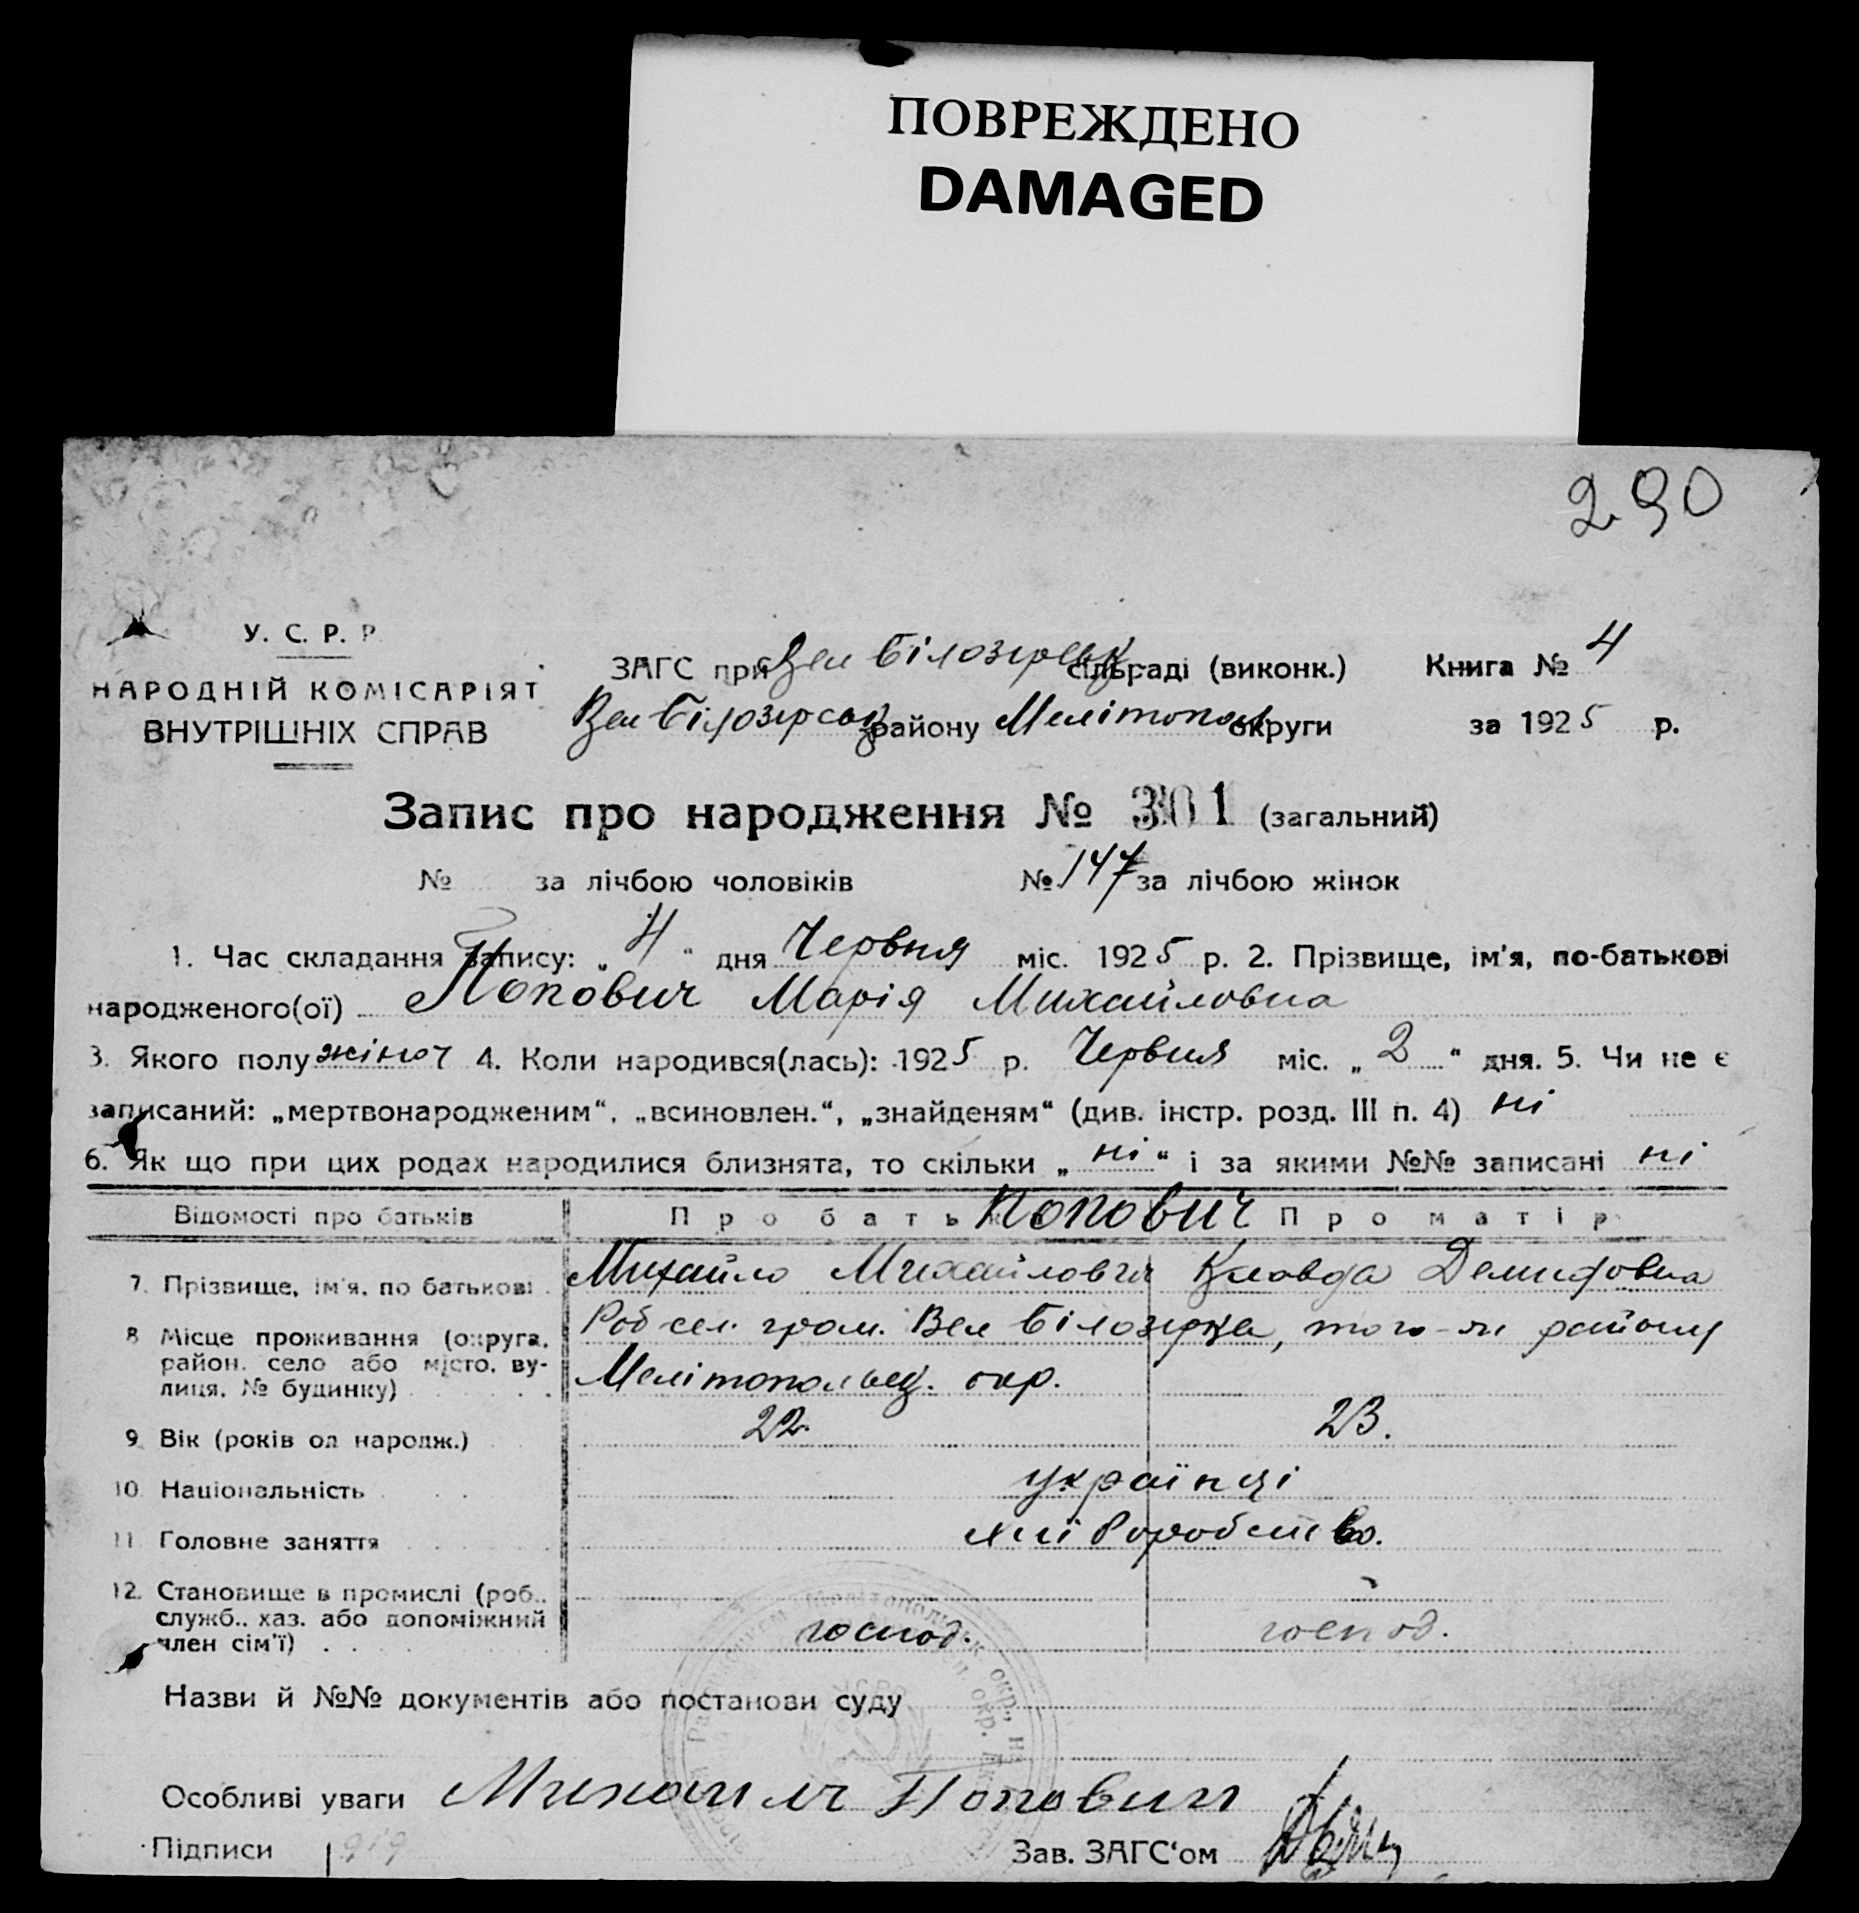 ПОВРЕЖДЕНО
DAMAGED
290
У. С. Р. Р.
НАРОДНІЙ КОМІСАРІЯТ
ВНУТРІШНІХ СПРАВ
ЗАГС при Вел Білозірськ сільраді (виконк.) Книга № 4
Вел Білозірськ району Мелітополь округи за 1925 р.
Запис про народження № 301 (загальний)
№ за лічбою чоловіків № 147 за лічбою жінок
1. Час складання запису: „4“ дня Червня міс. 1925 р. 2. Прізвище, ім'я, по-батькові
народженого(ої) Попович Марія Михайловна
3. Якого полу жіноч 4. Коли народився(лась): 1925 р. Червня міс. „2“ дня. 5. Чи не є
записаний: „мертвонародженим“, „всиновлен.“, „знайденям“ (див. інстр. розд. III п. 4) ні
6. Як що при цих родах народилися близнята, то скільки „ні“ і за якими №№ записані ні
Відомості про батьків Про батьк Попович Про матір
7. Прізвище, ім'я, по батькові Михайло Михайлович Клавда Демидовна
8 Місце проживання (округа, район, село або місто, вулиця, № будинку) Роб сел. гром. Вел Білозірка, того-ж району
Мелітопольськ. окр.
9. Вік (років од народж.) 22. 23.
10. Національність українці
11. Головне заняття хліборобство.
12. Становище в промислі (роб.,
служб., хаз. або допоміжний
член сім'ї) господ. господ.
Назви й №№ документів або постанови суду
Особливі уваги Михаил Попович
Підписи Зав. ЗАГС'ом